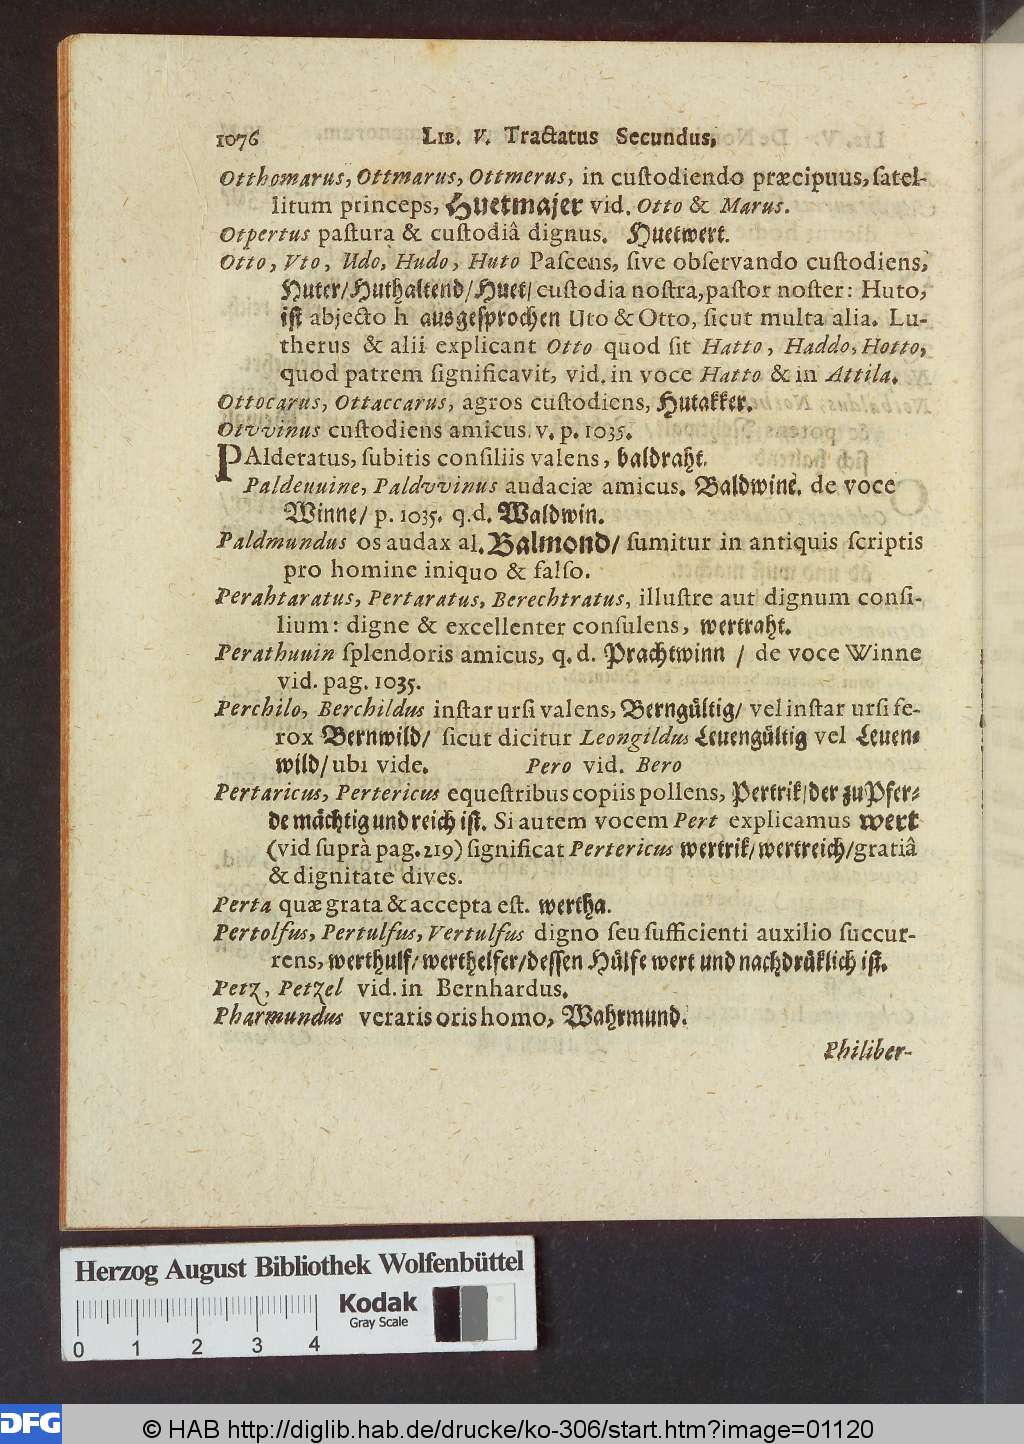 1076 LIB. V. Tractatus Secundus,
Otthomarus, Ottmarus, Ottmerus, in custodiendo præcipuus, satel-
litum princeps, Huetmajer vid. Otto & Marus.
Otpertus pastura & custodiâ dignus. Huetwert.
Otto, Vto, Udo, Hudo, Huto Pascens, sive observando custodiens,
Huter/Huthaltend/Huet/custodia nostra, pastor noster: Huto,
ist abjecto h ausgesprochen Uto & Otto, sicut multa alia. Lu-
therus & alii explicant Otto quod sit Hatto, Haddo, Hotto,
quod patrem significavit, vid. in voce Hatto & in Attila.
Ottocarus, Ottaccarus, agros custodiens, Hutakker.
Otvvinus custodiens amicus. v. p. 1035.
PAlderatus, subitis consiliis valens, baldraht.
Paldeuuine, Paldvvinus audaciæ amicus. Baldwine. de voce
Winne/ p. 1035. q.d. Waldwin.
Paldmundus os audax al. Balmond/ sumitur in antiquis scriptis
pro homine iniquo & falso.
Perahtaratus, Pertaratus, Berechtratus, illustre aut dignum consi-
lium: digne & excellenter consulens, wertraht.
Perathuuin splendoris amicus, q. d. Prachtwinn / de voce Winne
vid. pag. 1035.
Perchilo, Berchildus instar ursi valens, Berngültig/ vel instar ursi fe-
rox Bernwild/ sicut dicitur Leongildus Leuengültig vel Leuen-
wild/ubi vide. Pero vid. Bero
Pertaricus, Pertericus equestribus copiis pollens, Pertrik/der zu Pfer-
de mächtig und reich ist. Si autem vocem Pert explicamus wert
(vid suprà pag. 219) significat Pertericus wertrik/wertreich/gratiâ
& dignitate dives.
Perta quæ grata & accepta est. wertha.
Pertolfus, Pertulfus, Vertulfus digno seu sufficienti auxilio succur-
rens, werthulf/werthelfer/dessen Hülfe wert und nachdrüklich ist.
Petz, Petzel vid. in Bernhardus.
Pharmundus veraris oris homo, Wahrmund.
Philiber-
Herzog August Bibliothek Wolfenbüttel
Kodak
Gray Scale
0 1 2 3 4
DFG © HAB http://diglib.hab.de/drucke/ko-306/start.htm?image=01120